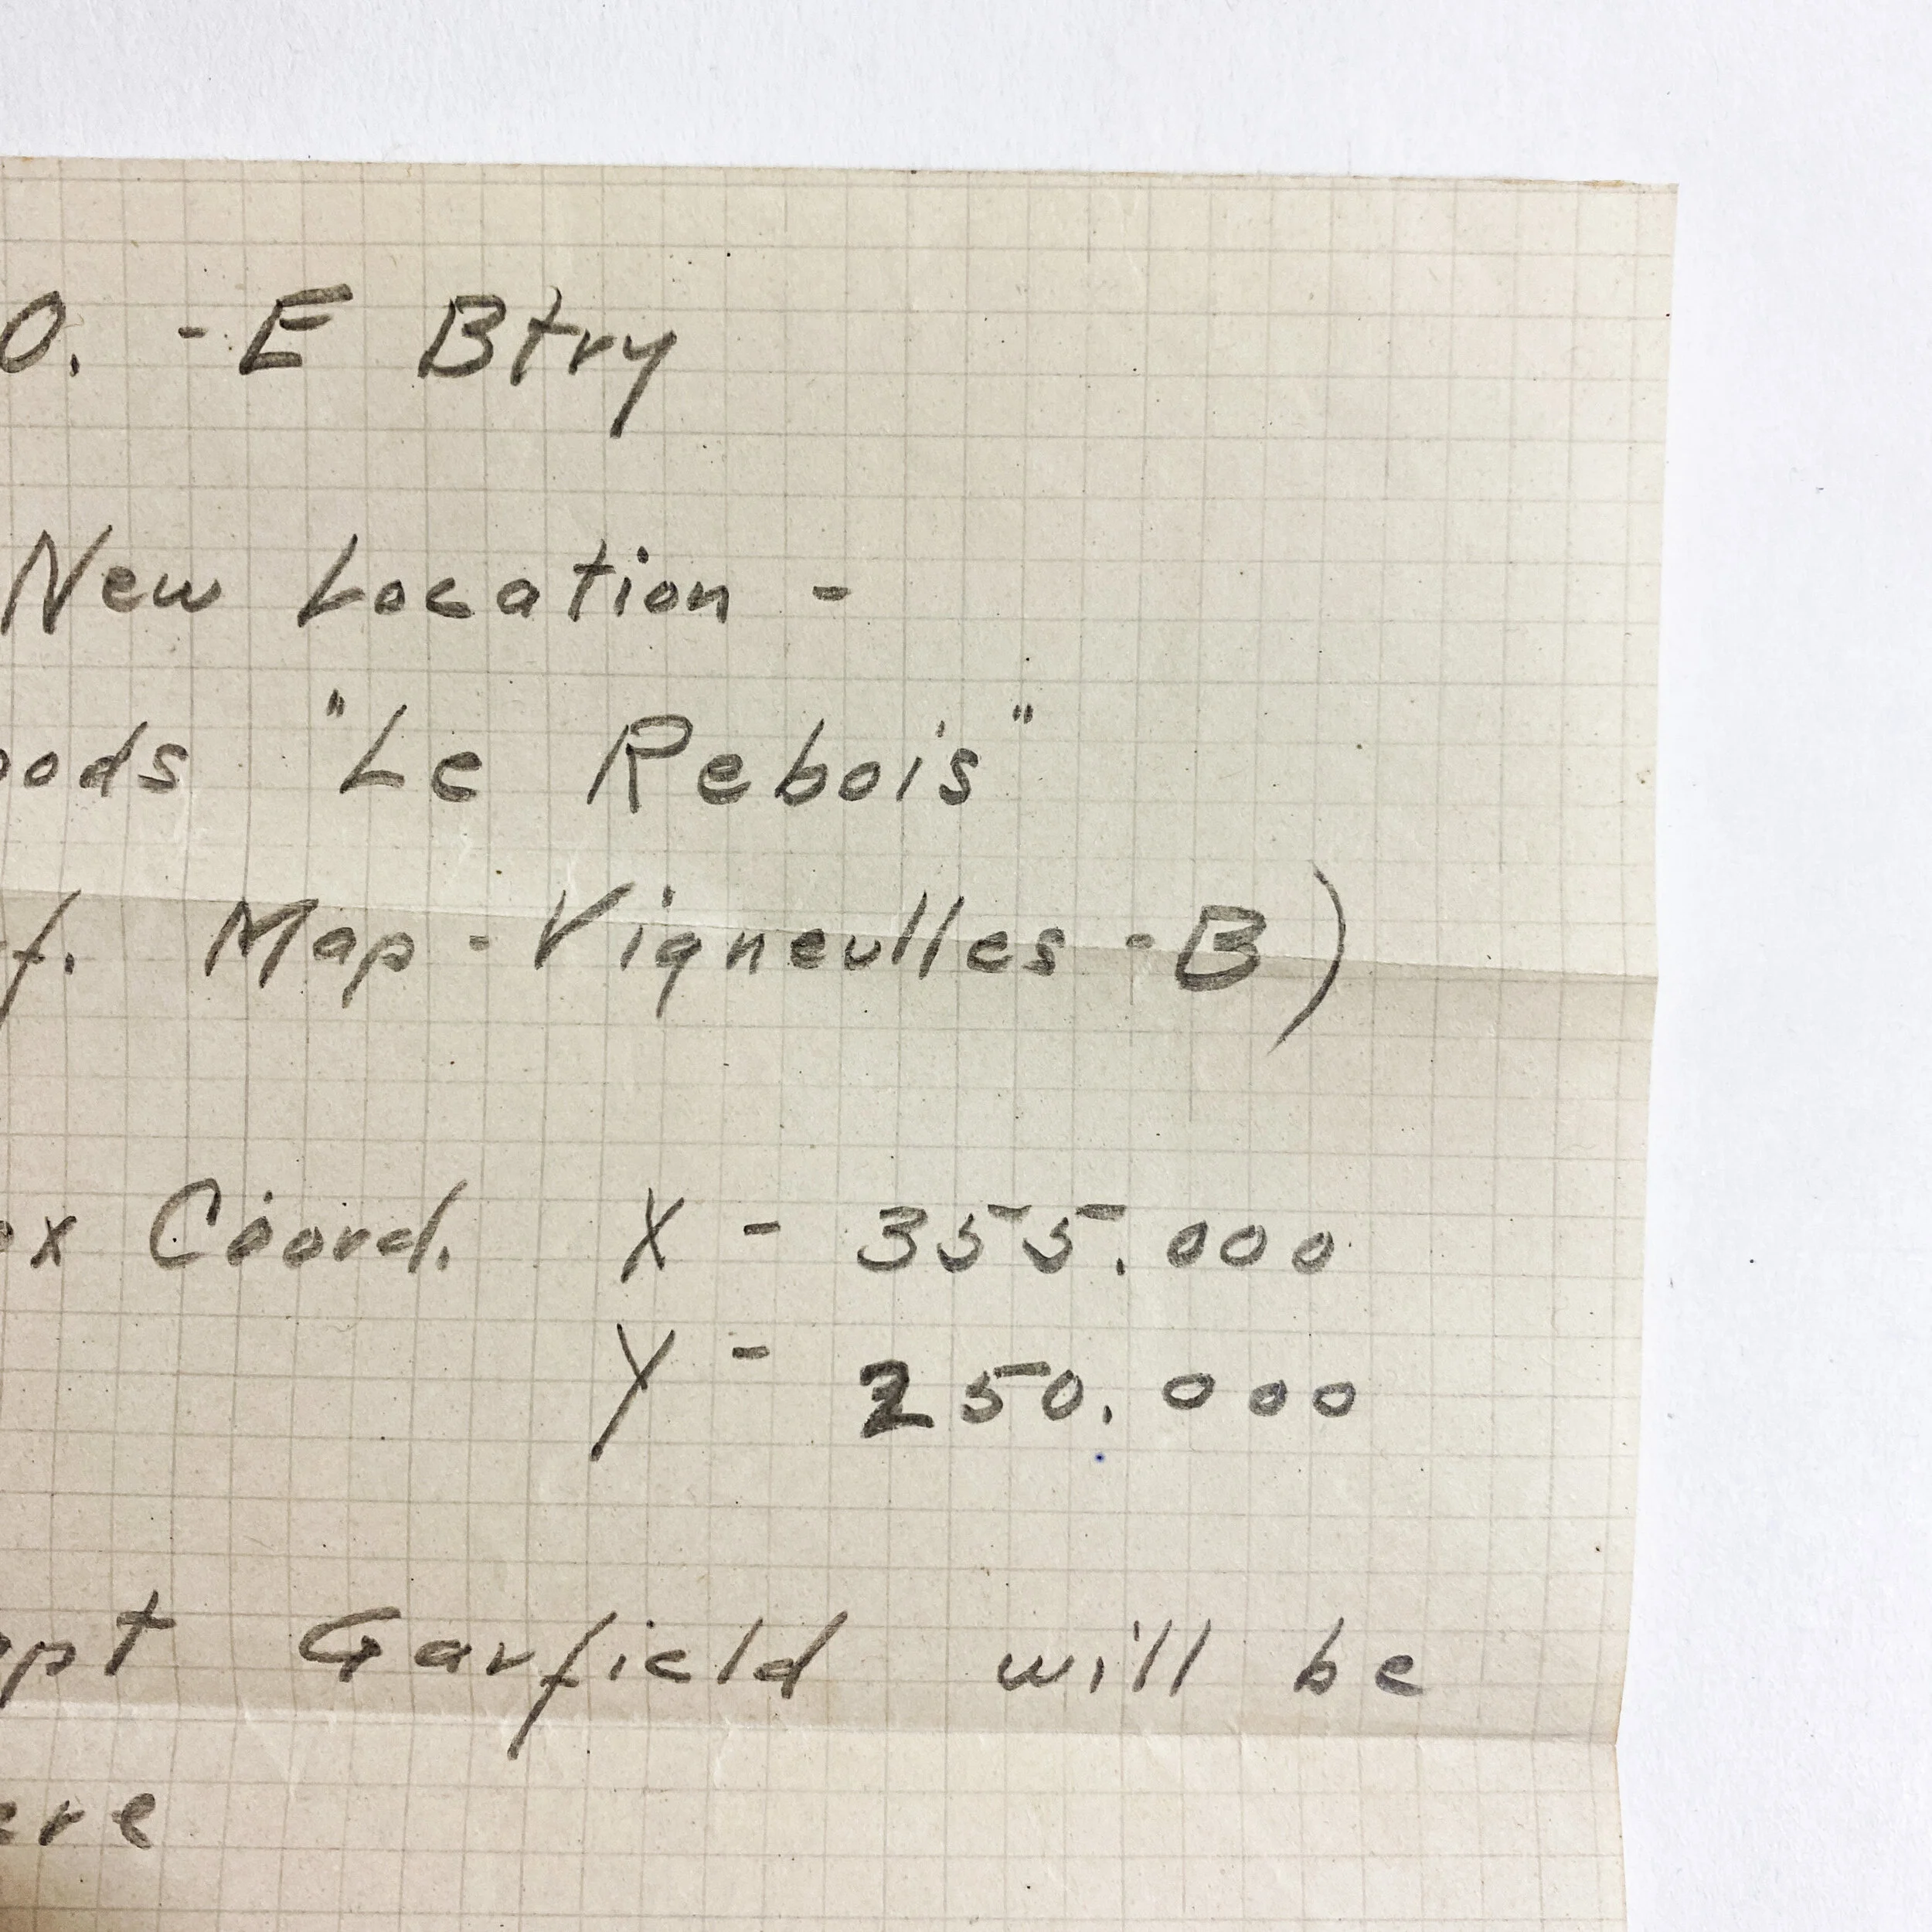 O. - E Btry
New Location -
oods "Le Rebois"
f. Map - Vigneulles - B)
ox Coord. X - 355.000
Y - 250.000
apt Garfield will be
ere